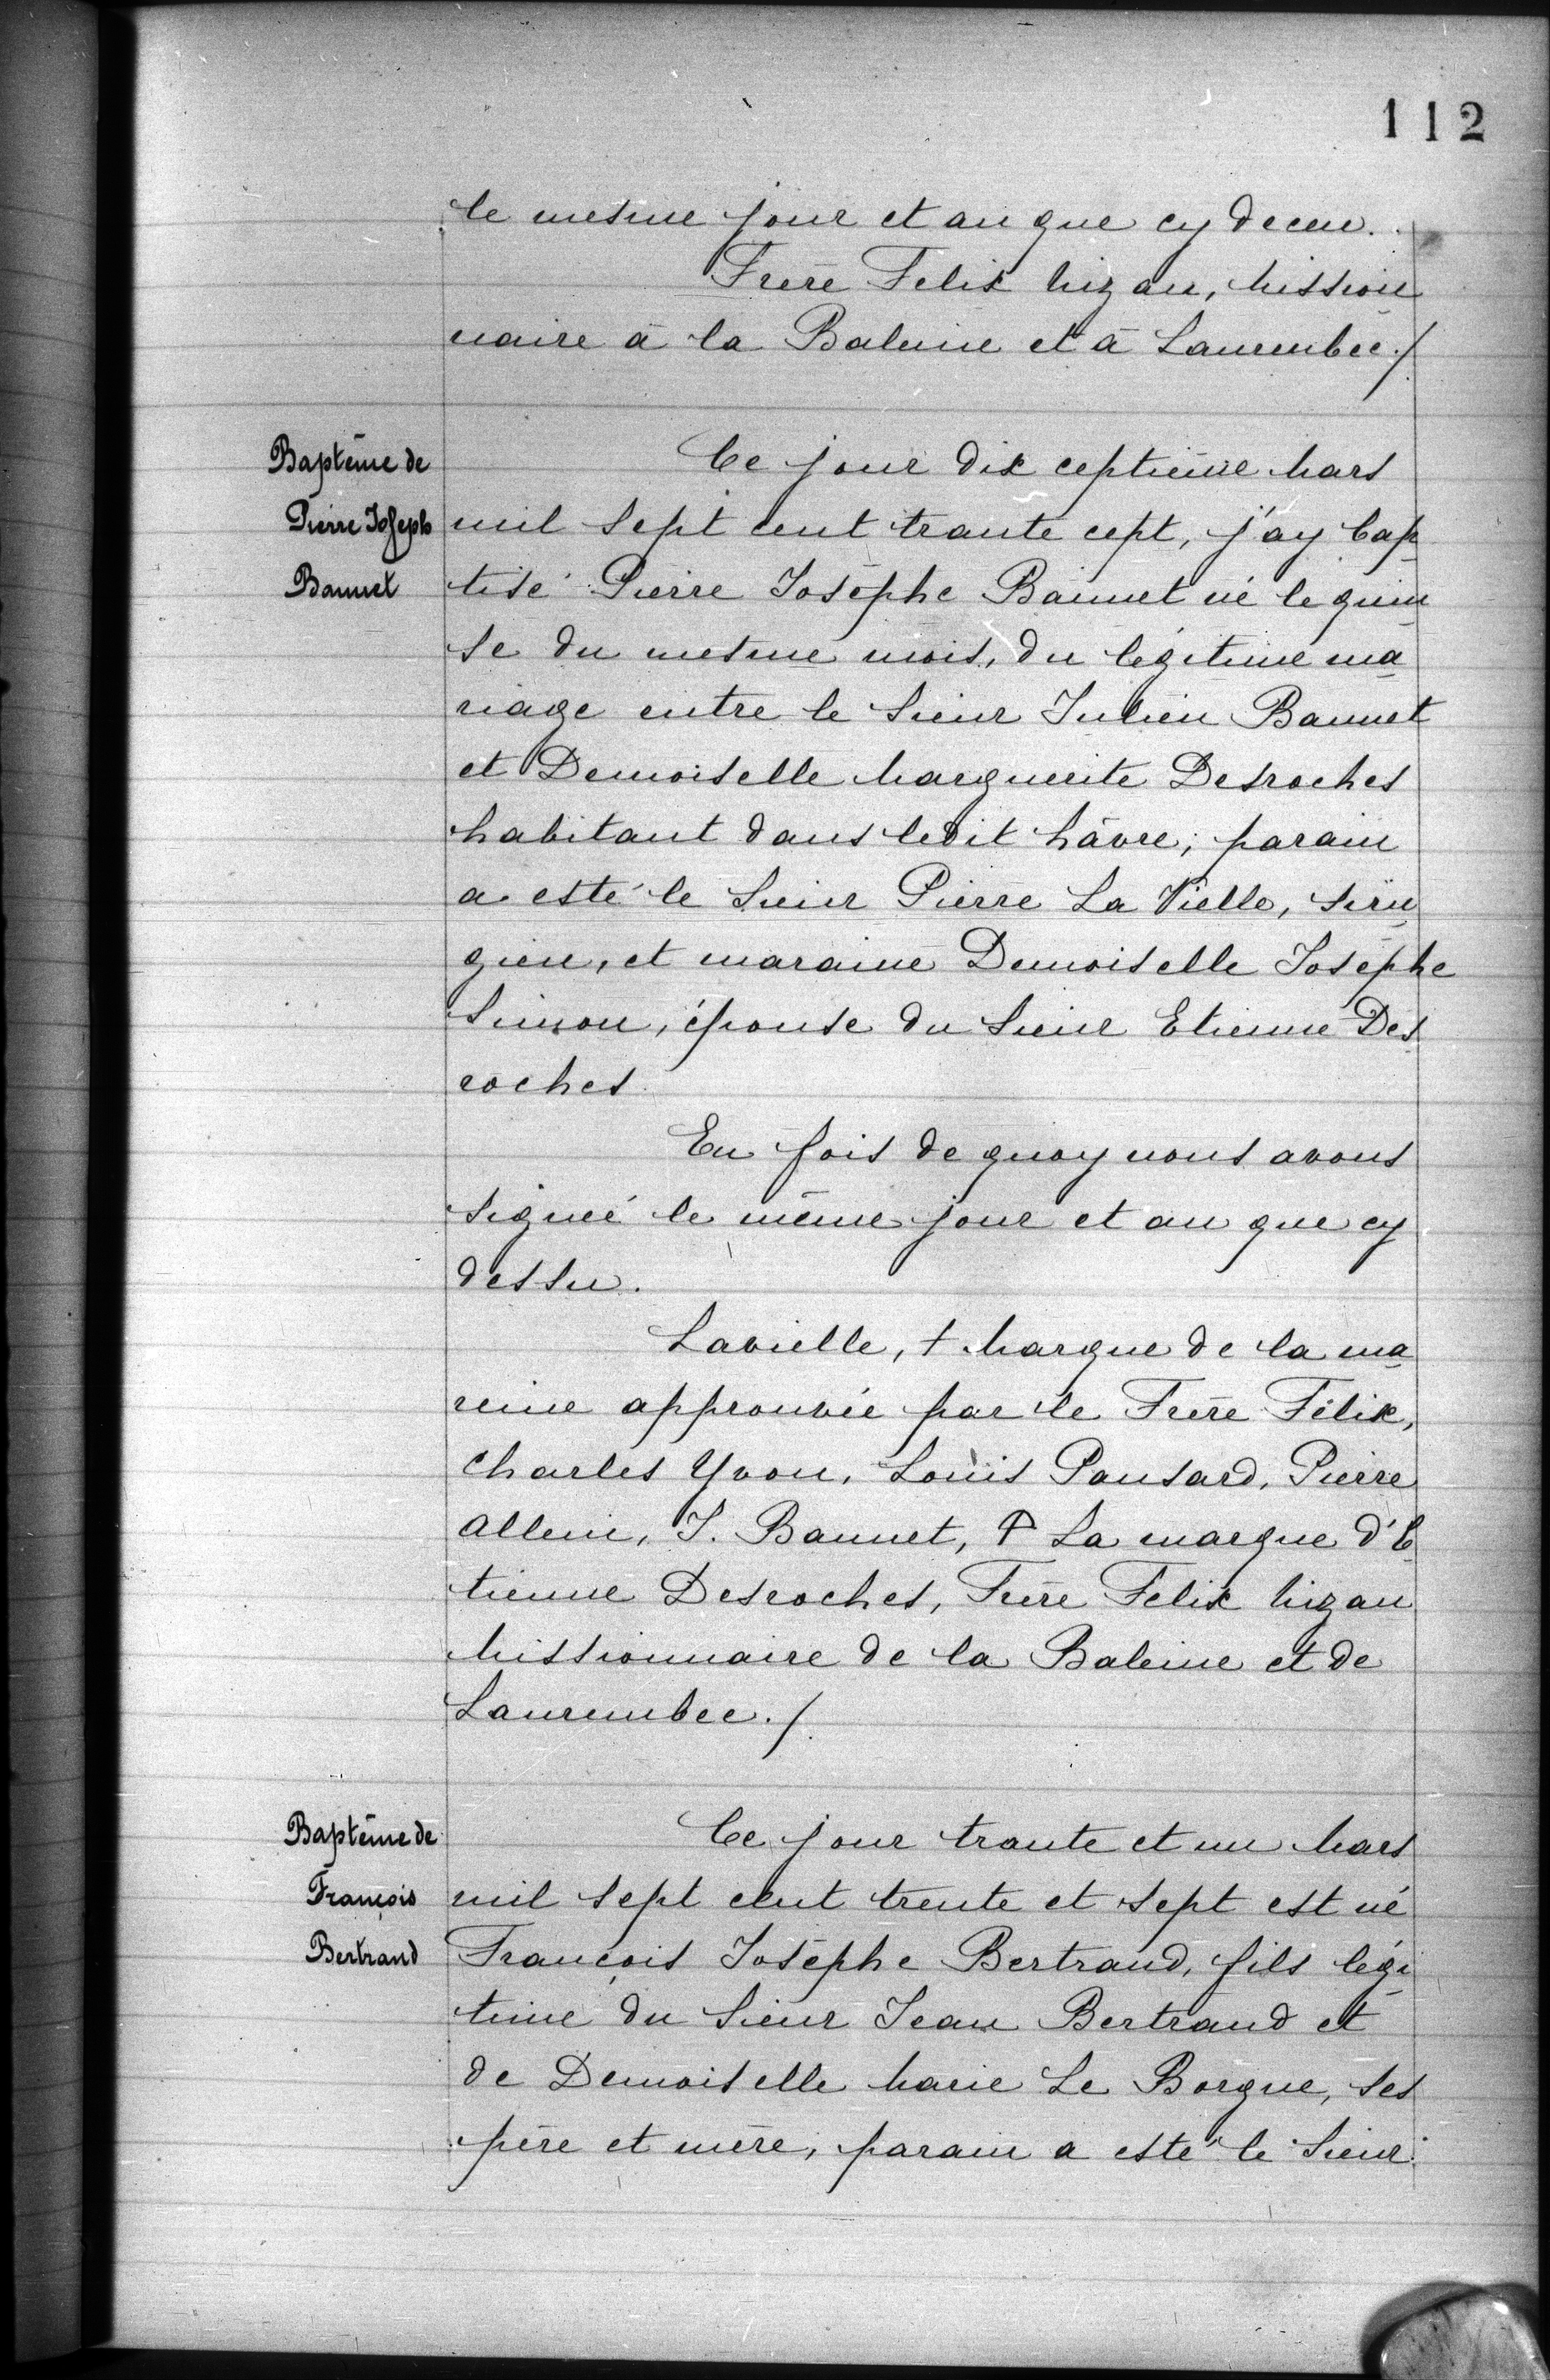 112
le mesme jour et an que cy deceu.
Frère Felix Mizan, Mission
naire à la Baleine et à Laurembec./
Baptême de
Pierre Joseph
Bannet
Ce jour dix ceptième Mars
mil sept cent trante cept, j'ay bap
tisé Pierre Josèphe Bannet né le quin
se du mesme mois, du légitime ma
riage entre le Sieur Julien Bannet
et Demoiselle Marguerite Desroches
habitant dans ledit hâvre; parain
a esté le Sieur Pierre La Vielle, siru
gien, et maraine Demoiselle Josèphe
Simon, épouse du Sieur Etienne Des
roches
En fois de quoy nous avons
signeé le même jour et an que cy
dessu.
Lavielle, † Marque de la ma
reine approuvée par le Frère Félix,
Charles Yvon, Louis Pansard, Pierre
Allein, J. Bannet, † La marque d'E
tienne Desroches, Frère Felix Mizan
Missionnaire de la Baleine et de
Laurembec./.
Baptême de
François
Bertrand
Ce jour trante et un Mars
mil sept cent trente et sept est né
François Josèphe Bertrand, fils légi
time du Sieur Jean Bertrand et
de Demoiselle Marie Le Borgne, ses
père et mère, parain a esté le Sieur